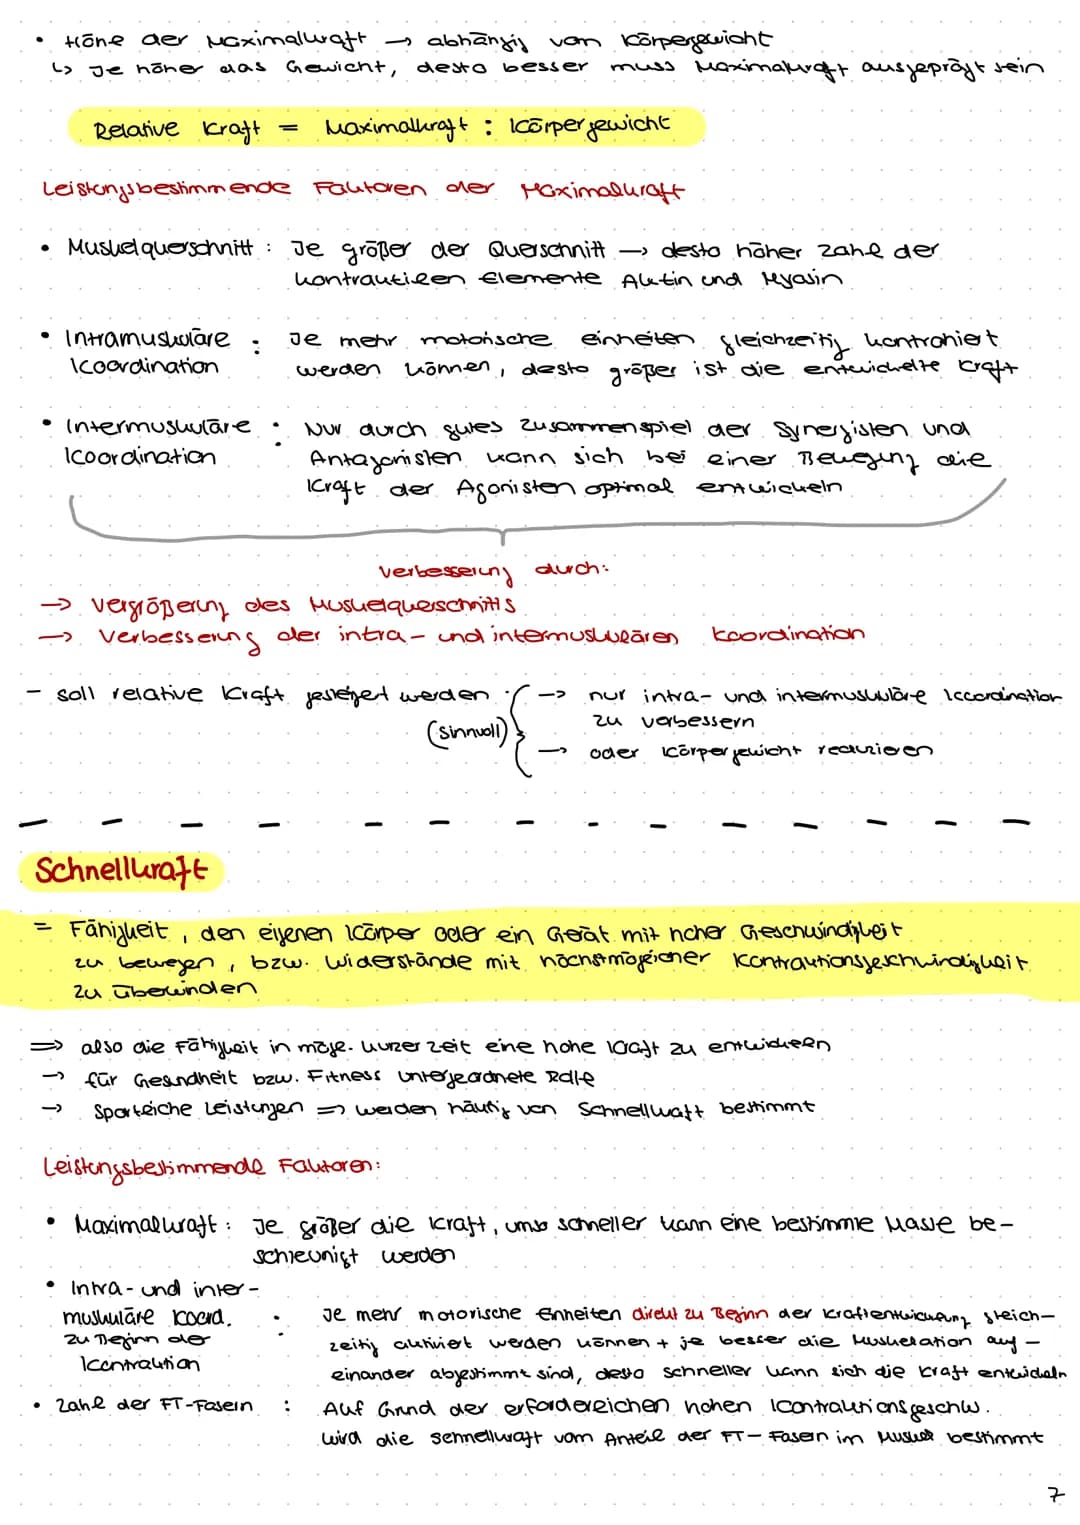 • Höhe der Maximalkraft → abhängig vom Körpergewicht
↳ Je höher das Gewicht, desto besser muss Maximalkraft ausgeprägt sein
Relative Kraft = Maximalkraft : Körpergewicht
Leistungsbestimmende Faktoren der Maximalkraft
• Muskelquerschnitt : Je größer der Querschnitt → desto höher Zahl der
kontraktilen Elemente Aktin und Myosin
• Intramuskuläre : Je mehr motorische einheiten gleichzeitig kontrahiert
Koordination werden können, desto größer ist die entwickelte Kraft
• Intermuskuläre : Nur durch gutes Zusammenspiel der Synergisten und
Koordination Antagonisten kann sich bei einer Bewegung die
Kraft der Agonisten optimal entwickeln
Verbesserung durch:
→ Vergrößerung des Muskelquerschnitts
→ Verbesserung der intra- und intermuskulären Koordination
- soll relative Kraft gesteigert werden : → nur intra- und intermuskuläre Koordination
zu verbessern
(sinnvoll)
→ oder Körpergewicht reduzieren
Schnellkraft
= Fähigkeit, den eigenen Körper oder ein Gerät mit hoher Geschwindigkeit
zu bewegen, bzw. Widerstände mit höchstmöglicher Kontraktionsgeschwindigkeit
zu überwinden
⇒ also die Fähigkeit in mögl. kurzer Zeit eine hohe Kraft zu entwickeln
→ für Gesundheit bzw. Fitness untergeordnete Rolle
→ Sportliche Leistungen ⇒ werden häufig von Schnellkraft bestimmt
Leistungsbestimmende Faktoren:
• Maximalkraft : Je größer die Kraft, umso schneller kann eine bestimmte Masse be-
schleunigt werden
• Intra- und inter-
muskuläre Koord. : Je mehr motorische Einheiten direkt zu Beginn der Kraftentwicklung gleich-
zu Beginn der zeitig aktiviert werden können + je besser die Muskelaktion auf-
Kontraktion einander abgestimmt sind, desto schneller kann sich die Kraft entwickeln
• Zahl der FT-Fasern : Auf Grund der erforderlichen hohen Kontraktionsgeschw.
wird die Schnellkraft vom Anteil der FT-Fasern im Muskel bestimmt
7